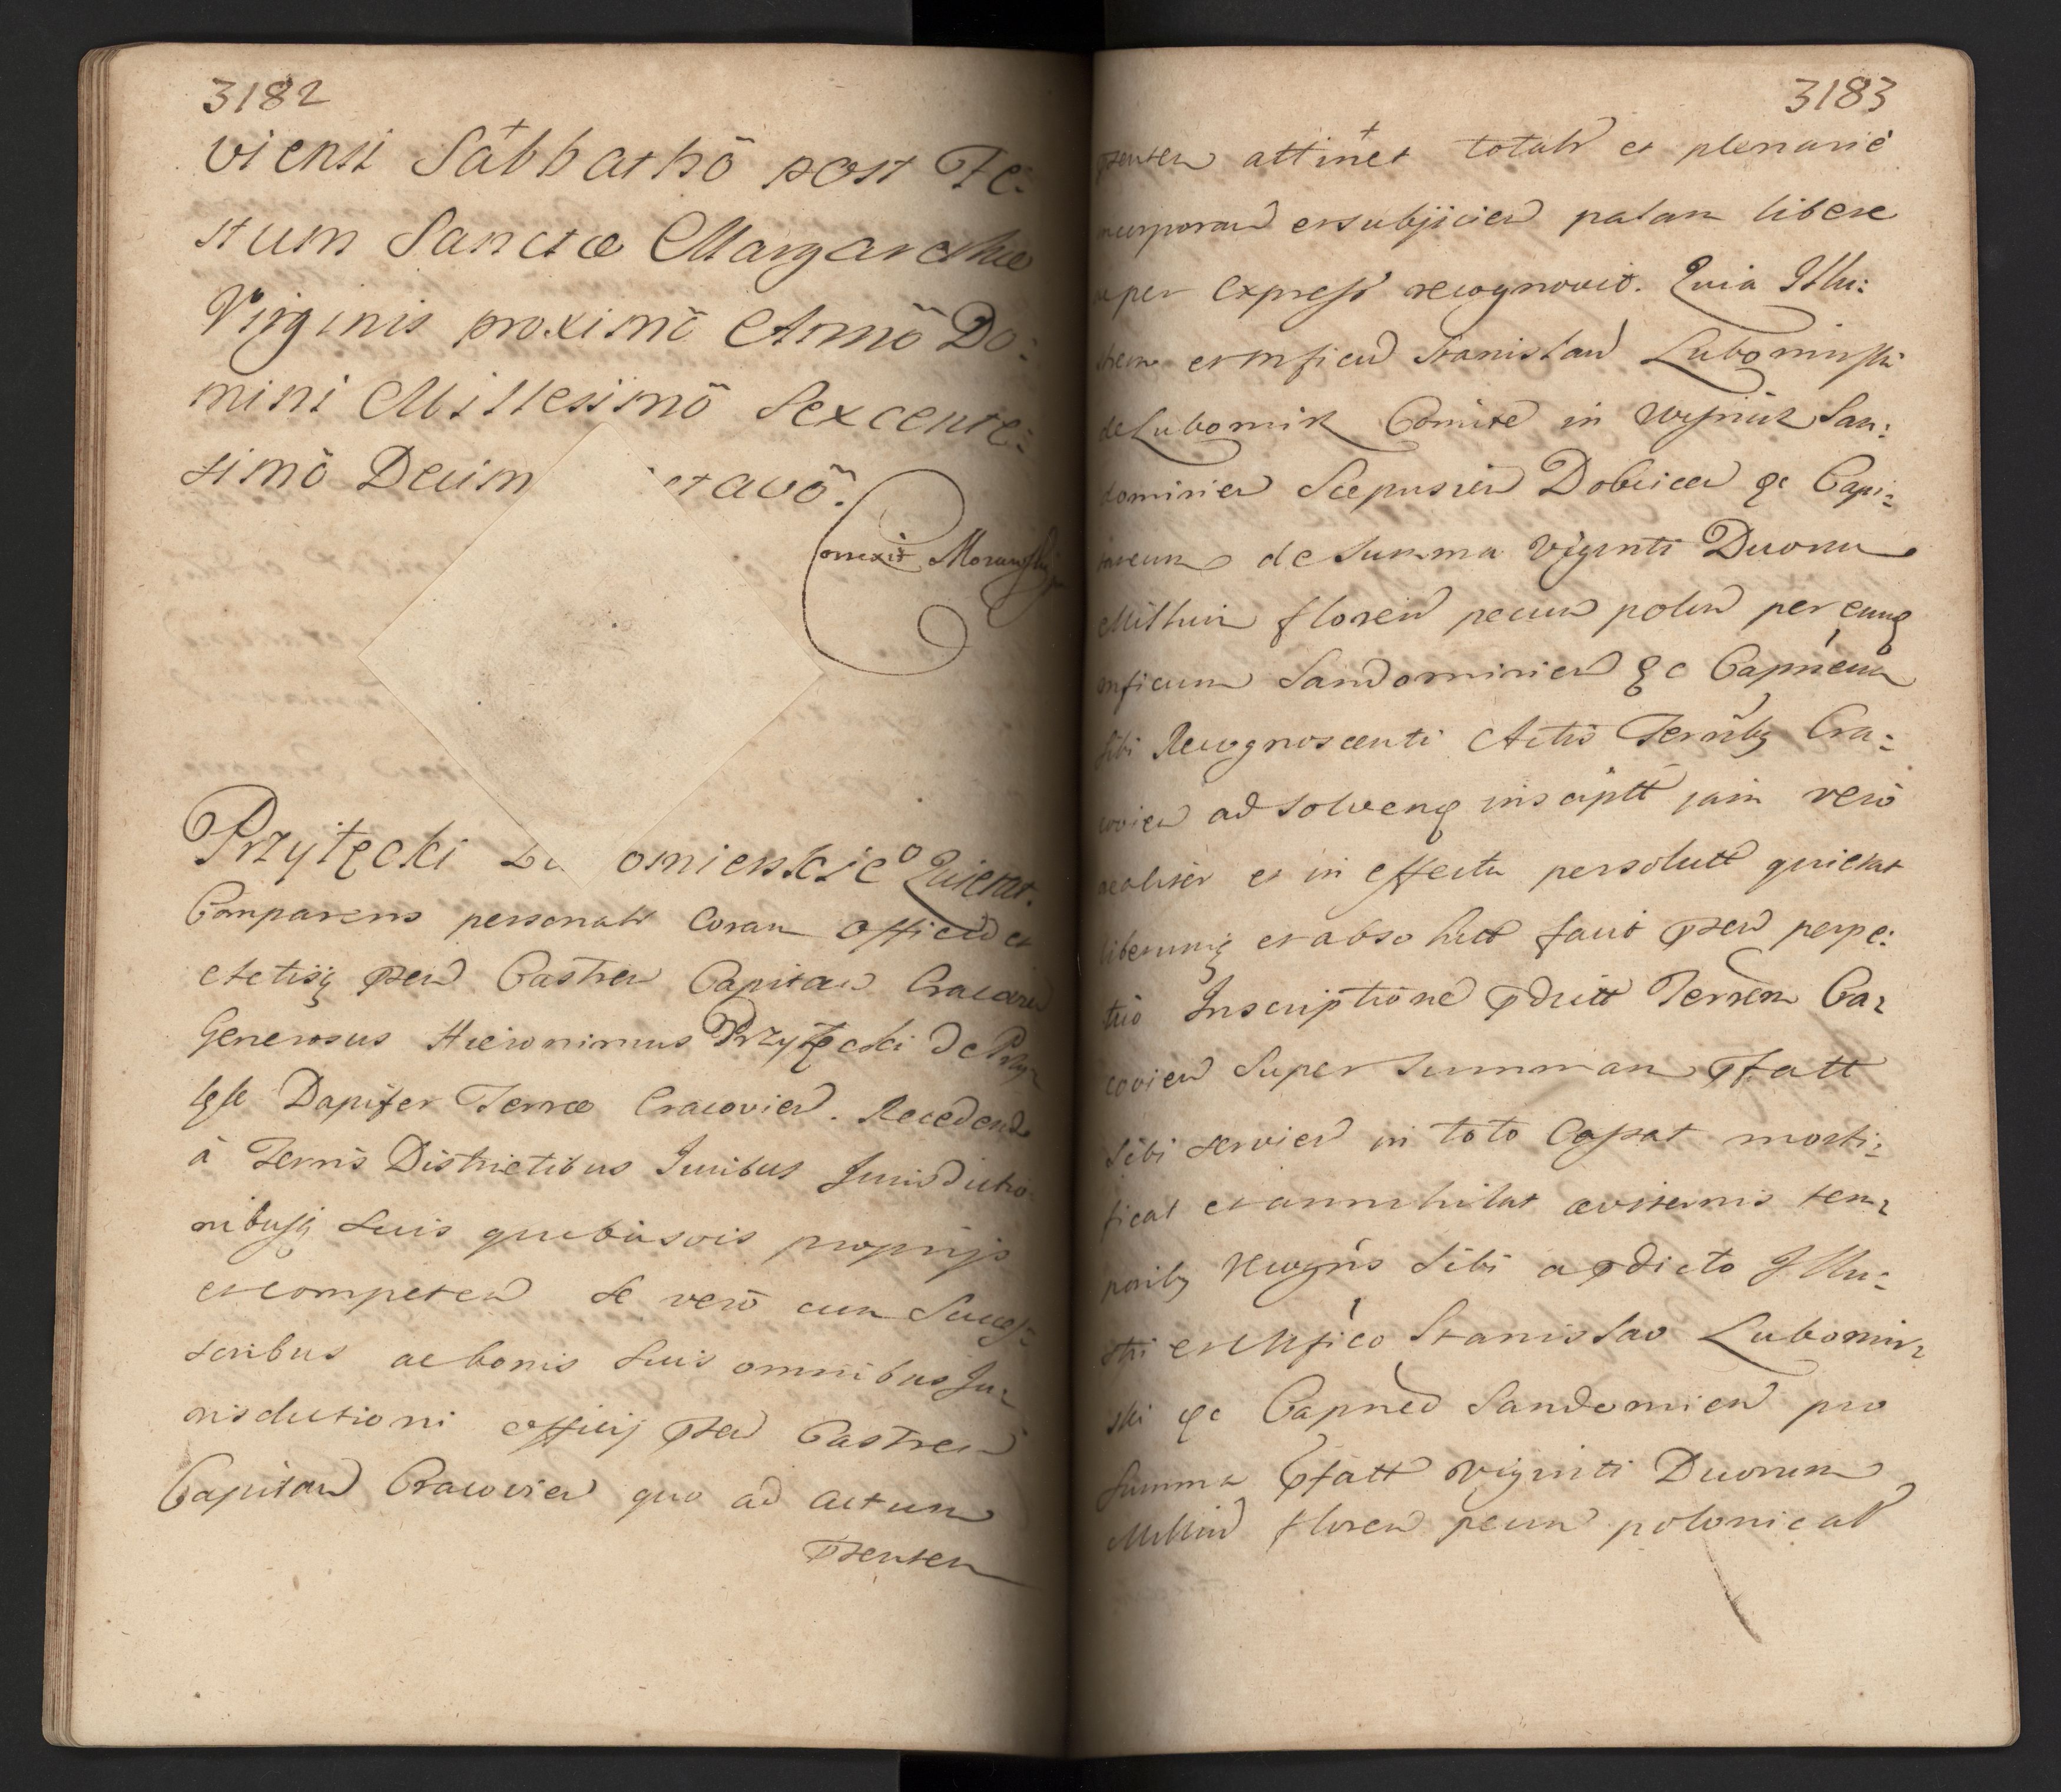 3182
viensi Sabbathō post Fe:
stum Sanctæ Margarethæ
Virginis proximō Annō Do:
mini Millesimō Sexcente:
simō Decim ctavō.
Correxit Morawski
Przyłęcki Lu omierskie⁰ Quietat.
Comparens personalr coram officio et
Actisq pzen Castren Capitan Cracovien
Generosus Hieronimus Przyłęcki de Przy
łęk Dapifer Terræ Cracovien. Recedend
à Terris Districtibus Iuribus Jurisdictio
nibusq suis quibusvis proprijs
et competen se verō cum Succes:
soribus ac bonis suis omnibus Ju:
risdictioni officij pzen Castren
Capitan Cracovien quo ad actum
pzenten
3183
pzenten attinet totalr et plenariè
incorporan et subjicien palam libere
ac per express recognovit. Quia Illu:
strem et Mficum Stanislaum Lubomirski
de Lubomir Comite in Wisnicz San:
domirien Scepusien Dobcicen &c Capi:
taneum de summa Viginti Duorum
Millium floren pecun polon per eunq
mficum Sandomirien &c Capneum
sibi Recognoscenti Actis Terribq Cra:
covien ad solvenq inscriptt jam verō
realiter et in effectu persolutt quietat
liberumq et absolutt facit pzen perpe:
tuō Inscriptione pdictt Terren Cra:
covien super summam pfatt
sibi servien in toto Cassat morti:
ficat et annihilat æviternis tem:
poribq recogns sibi a pdicto Illu:
stri et Mfico Stanislao Lubomir:
ski &c Capneo Sandomirien pro
summa pfatt viginti Duorum
Millium floren pecun polonical